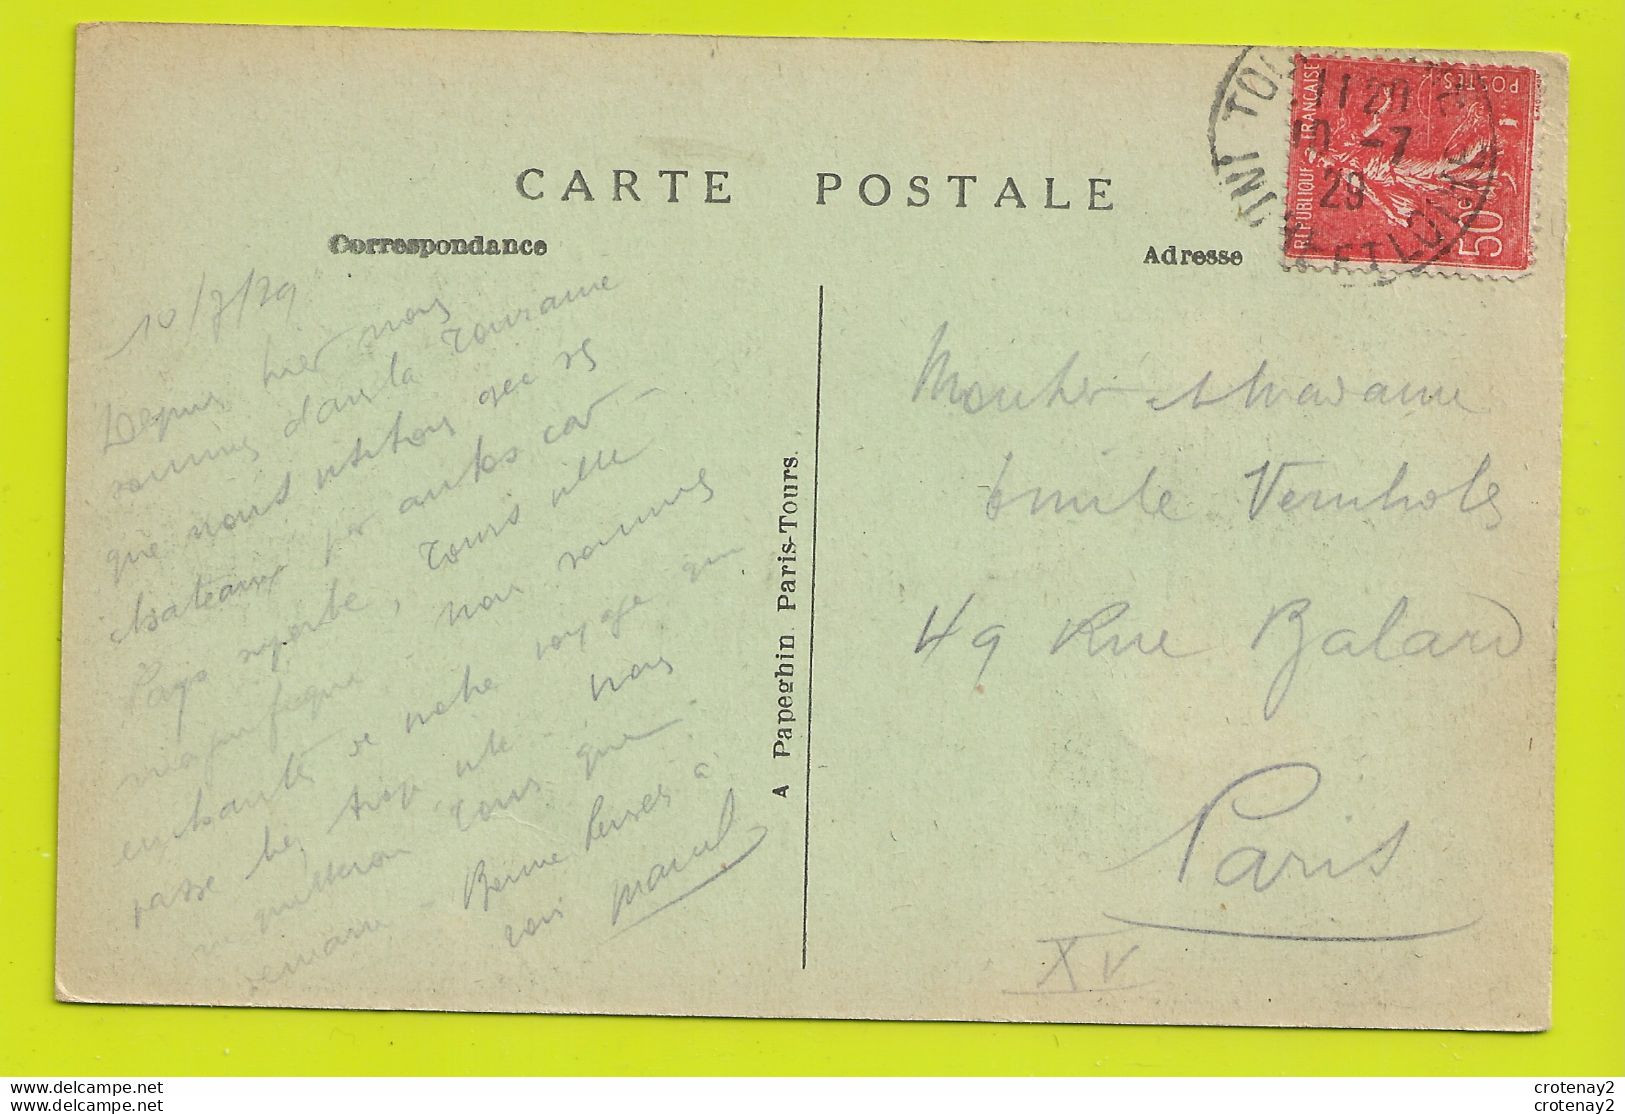 CARTE POSTALE
Correspondance
Adresse
RÉPUBLIQUE FRANÇAISE
POSTES
50c
11 20
10 -7
29
ET LOIRE
10/7/29
Depuis hier nous
sommes dans la Touraine
que nous visitons avec ses
chateaux par autos car -
Pays superbe, Tours ville
magnifique. Nous sommes
enchantés de notre voyage qui
passe trop vite. Nous
ne quitterons Tours que
demain - Bonne Pensée à
vous Marcel
A Papeghin Paris-Tours.
Monsieur et Madame
Emile Vernhols
49 Rue Balard
Paris
XV
delcampe.net
delcampe.net
crotenay2
crotenay2